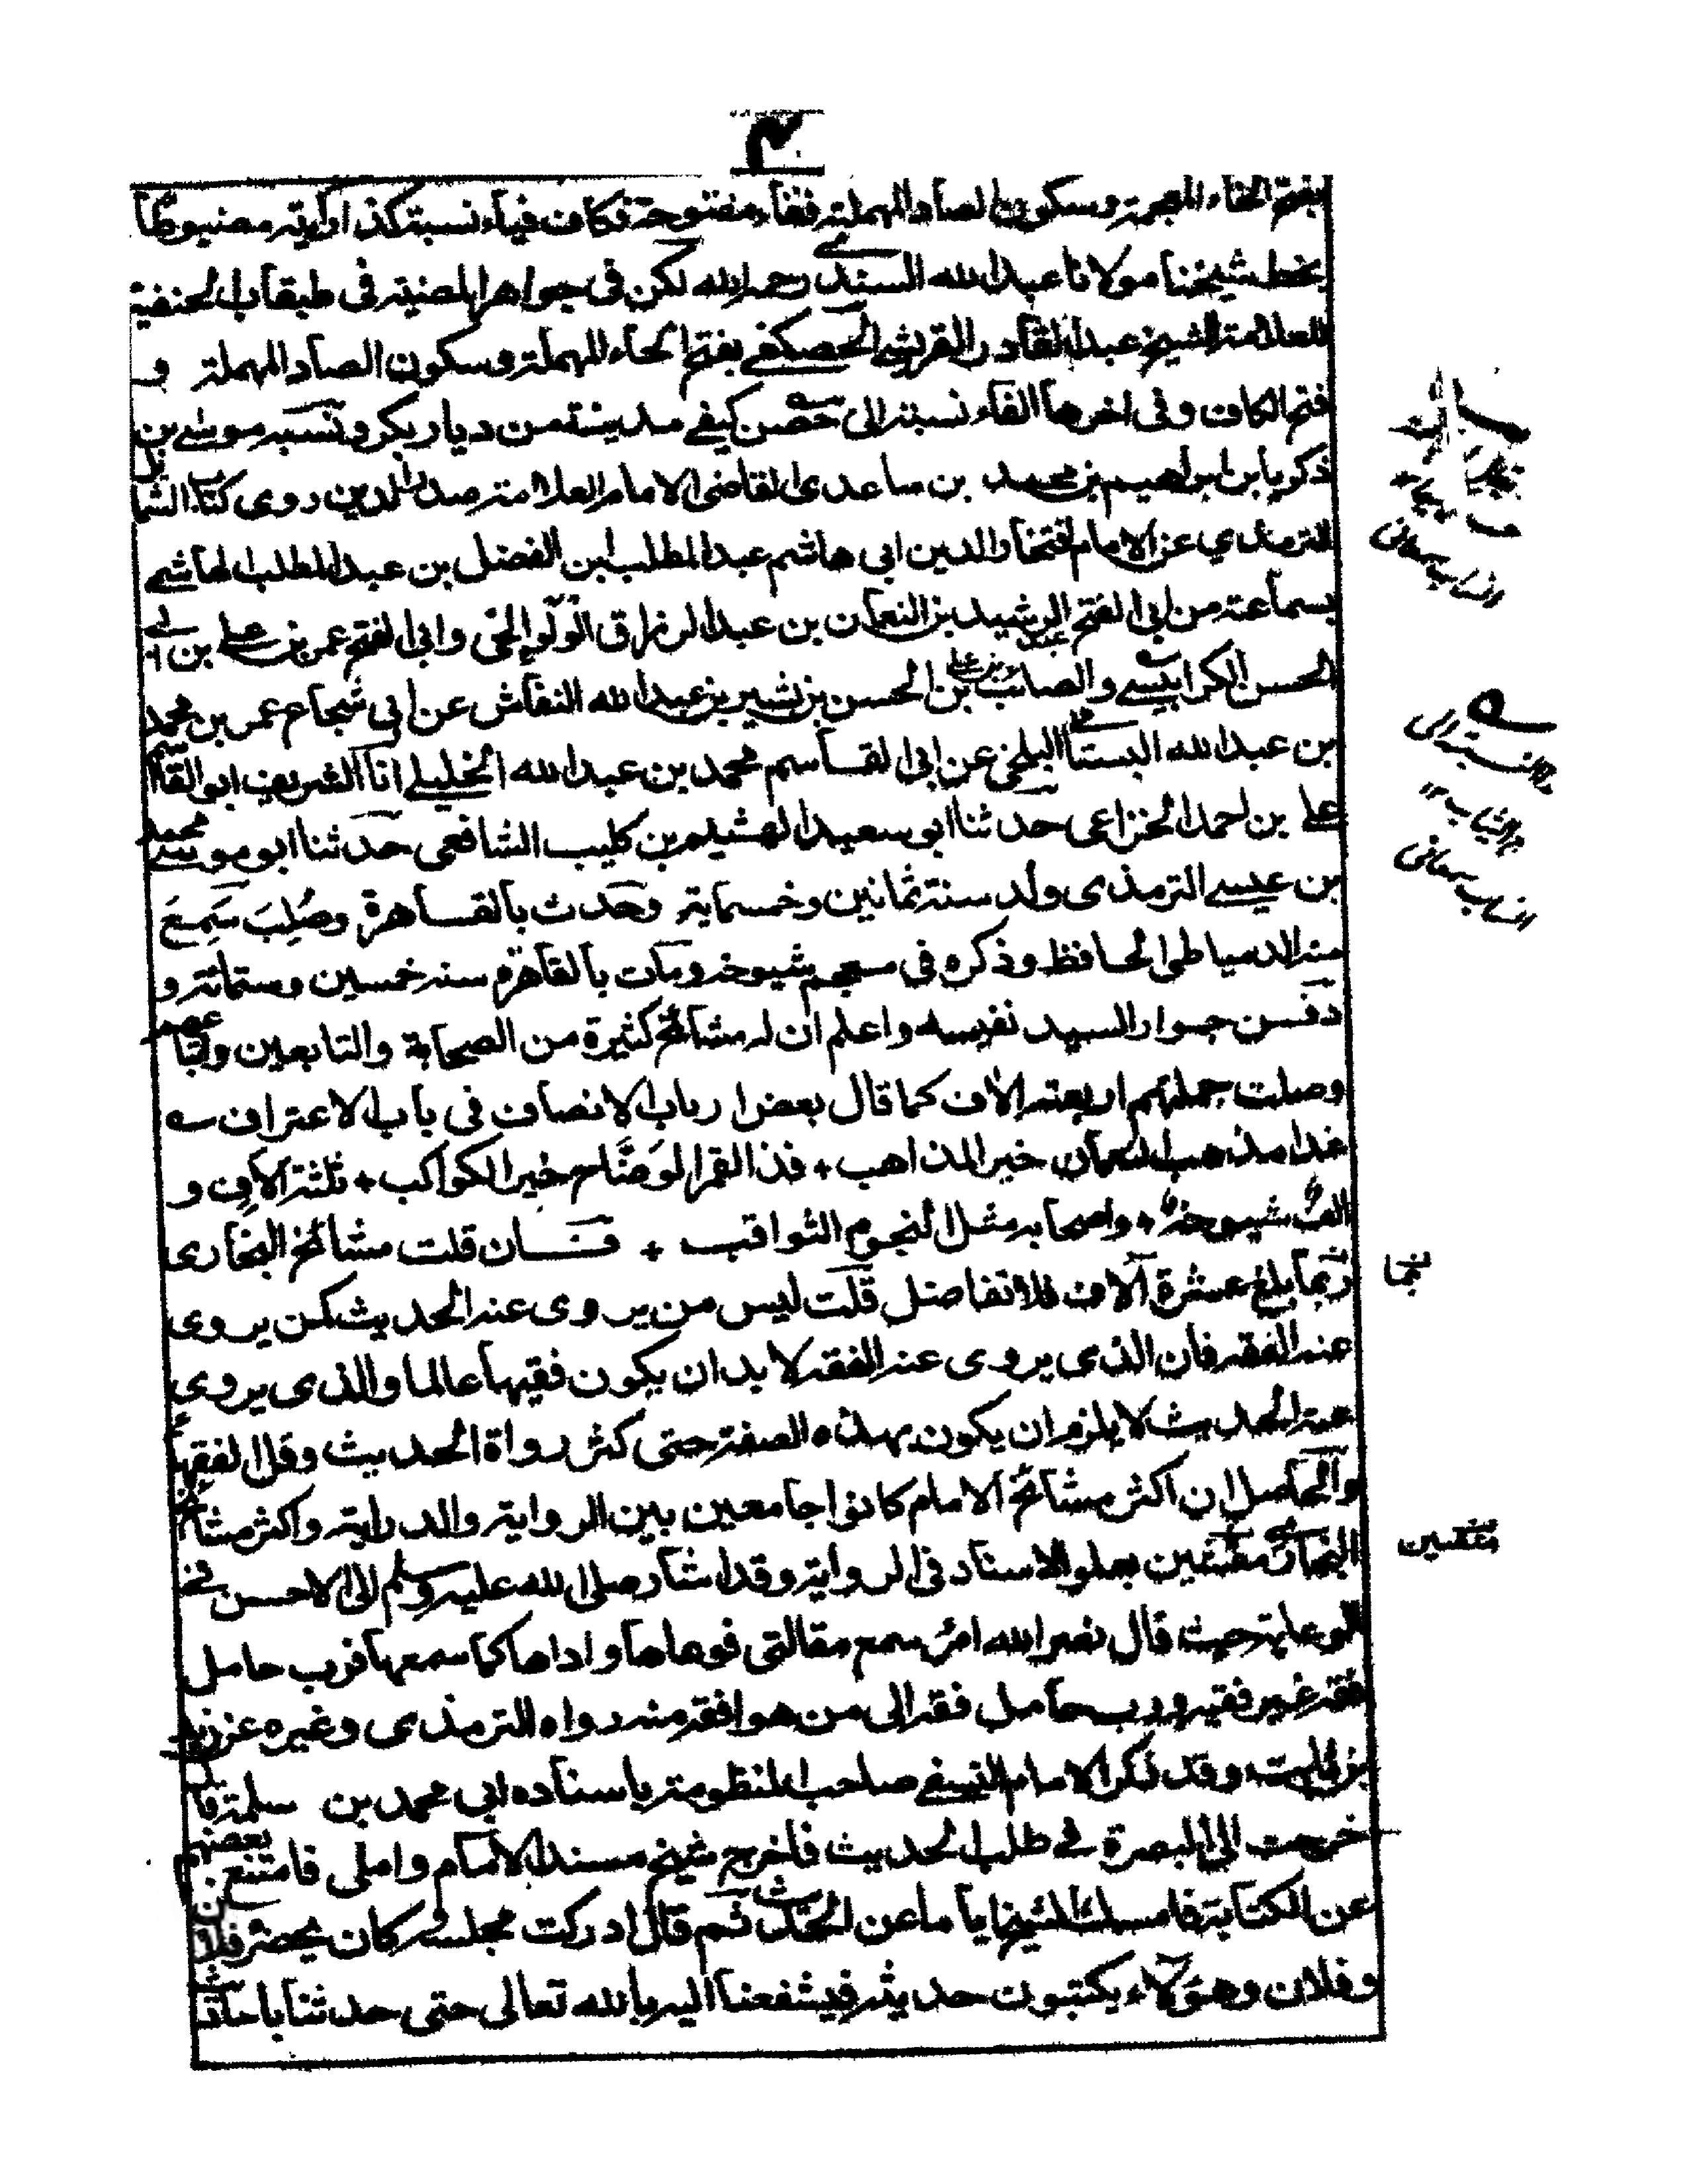 ٣
بفتح الخاء المعجمة وسكون الصاد المهملة ففاء مفتوحة فكاف فياء نسبة كذا رأيته مضبوطاً
بخط شيخنا مولانا عبد الله السندى رحمه الله لكن فى جواهر المضيئة فى طبقات الحنفية
للعلامة الشيخ عبد القادر القرشى الحصكفى بفتح الحاء المهملة وسكون الصاد المهملة و
فتح الكاف وفى اخرها الفاء نسبة الى حصن كيفى مدينة من ديار بكر ونسبه موسى بن
ذكريا بن ابراهيم بن محمد بن ساعدى القاضى الامام العلامة صدر الدين روى كتاب الشمائل
الترمذي عن الامام افتخار الدين ابى هاشم عبد المطلب ابن الفضل بن عبد المطلب الهاشمى
بسماعته من ابى الفتح عبد الرشيد بن النعمان بن عبد الرزاق الولوالجى وابى الفتح عمر بن على بن ابى
الحسن الكرابيسى والصائب بن على بن الحسن بن بشير بن عبد الله النقاش عن ابى شجاع عمر بن محمد
بن عبد الله البستامى البلخى عن ابى القاسم محمد بن عبد الله الخليلى انا الشريف ابو القاسم
على بن احمد الخزاعى حدثنا ابو سعيد الهشيم بن كليب الشافعى حدثنا ابو موسى محمد
بن عيسى الترمذى ولد سنة ثمانين وخمسماية وحدث بالقاهرة وصُلِبَ سَمِعَ
منه الدمياطى الحافظ وذكره فى معجم شيوخه ومات بالقاهرة سنه خمسين وستمائة و
دفن جوار السيد نفيسه واعلم ان له مشائخ كثيرة من الصحابة والتابعين واتباعهم
وصلت جملتهم اربعة الاف كما قال بعض ارباب الانصاف فى باب الاعتراف
غدا مذهب النعمان خير المذاهب + فذا القمر الوضّاح خير الكواكب + ثلثة الافٍ و
الفٌ شيوخهٗ + واصحابه مثل النجوم الثواقب + فان قلت مشائخ البخارى
ربما يبلغ عشرة آلاف فلا تفاضل قلت ليس من يروى عنه الحديث كمن يروى
عنه الفقه فان الذى يروى عنه الفقه لا بد ان يكون فقيها عالما والذى يروى
عنه الحديث لا يلزم ان يكون بهذه الصفة حتى كثر رواة الحديث وقل الفقهاء
والحاصل ان اكثر مشائخ الامام كانوا جامعين بين الرواية والدراية واكثر مشائخ
البخارى مقتنعين بعلو الاسناد فى الرواية وقد اشار صلى الله عليه وسلم الى الاحسن فى
الوعاية حيث قال نضر الله امرء سمع مقالتى فوعاها واداها كما سمعها فرب حامل
فقه غير فقيه ورب حامل فقه الى من هو افقه منه رواه الترمذى وغيره عن زيد
بن ثابت وقد ذكر الامام النسفى صاحب المنظومة باسناده ابى محمد بن سلمة قال
خرجت الى البصرة فى طلب الحديث فاخرج شيخ مسند الامام واملى فامتنع بعضهم
عن الكتابة فامسك الشيخ اياما عن الحديث ثم قال ادركت مجلسه كان يحضره فلان
وفلان وهؤلاء يكتبون حديثه فيشفعنا اليه بالله تعالى حتى حدثنا باحاديث
انساب سمعانى
انساب سمعانى